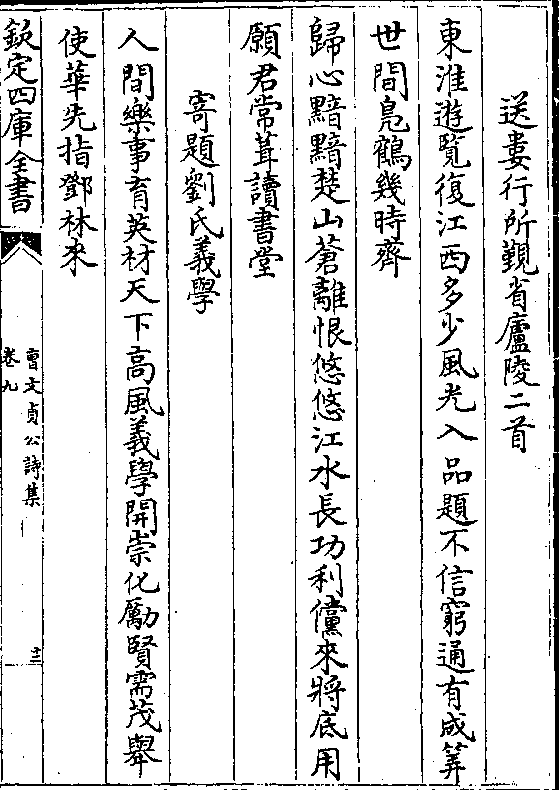 送婁行所覲省廬陵二首
東淮遊覽復江西多少風光入品題不信窮通有成筭
世間鳧鶴幾時齊
歸心黯黯楚山蒼離恨悠悠江水長功利儻來將底用
願君常葺讀書堂
寄題劉氏義學
人間樂事育英材天下高風義學開崇化勵賢需茂舉
使華先指鄧林來
欽定四庫全書
曹文貞公詩集
卷九
十二